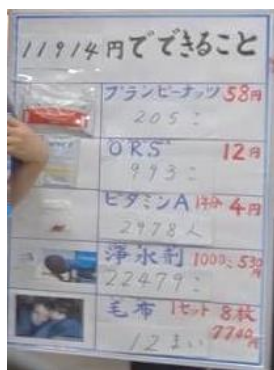 11914円でできること
プランピーナッツ 58円
205こ
ORS 12円
993こ
ビタミンA 1年分 4円
2978人
浄水剤 1000こ 530円
22479こ
毛布 1セット 8枚
7740円
12まい